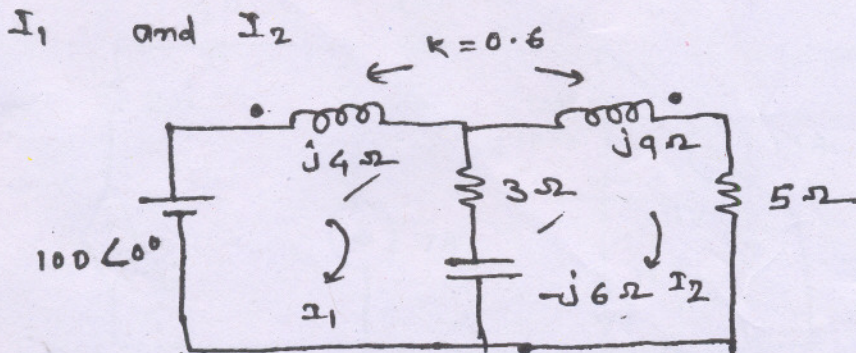 I₁ and I₂
K = 0.6
j4Ω
j9Ω
3Ω
5Ω
100∠0°
-j6Ω
I₁
I₂